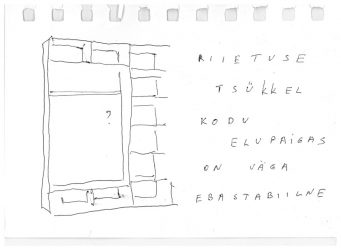 ?
RIIETUSE
TSÜKKEL
KODU
ELUPAIGAS
ON VÄGA
EBASTABIILNE